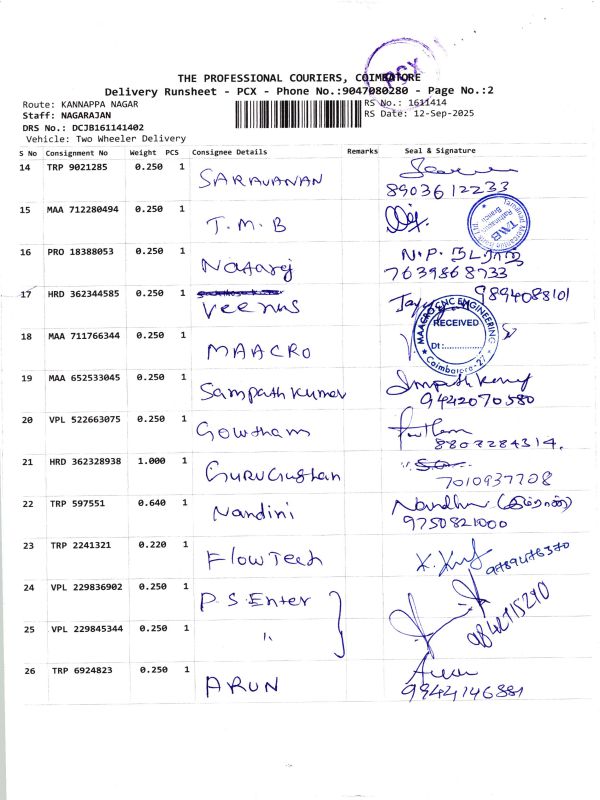 PCX
THE PROFESSIONAL COURIERS, COIMBATORE
Delivery Runsheet - PCX - Phone No.:9047080280 - Page No.:2
Route: KANNAPPA NAGAR
RS No.: 1611414
Staff: NAGARAJAN
RS Date: 12-Sep-2025
DRS No.: DCJB161141402
Vehicle: Two Wheeler Delivery
S No Consignment No Weight PCS Consignee Details Remarks Seal & Signature
14 TRP 9021285 0.250 1 SARAVANAN
8903612233
15 MAA 712280494 0.250 1 T.M.B
TMB
16 PRO 18388053 0.250 1 Nataraj N.P. நடராஜ
7639868733
17 HRD 362344585 0.250 1 Veenus 9894088101
MAACRO CNC ENGINEERING
RECEIVED
Dt:
Coimbatore-27
18 MAA 711766344 0.250 1 MAACRO
19 MAA 652533045 0.250 1 Sampath Kumar
9442070580
20 VPL 522663075 0.250 1 Gowtham
8802284314.
21 HRD 362328938 1.000 1
7010937708
22 TRP 597551 0.640 1 Nandini
9750821000
23 TRP 2241321 0.220 1 FlowTech
9789476370
24 VPL 229836902 0.250 1 P.S.Enter
25 VPL 229845344 0.250 1 "
9842915270
26 TRP 6924823 0.250 1 ARUN
9944146881